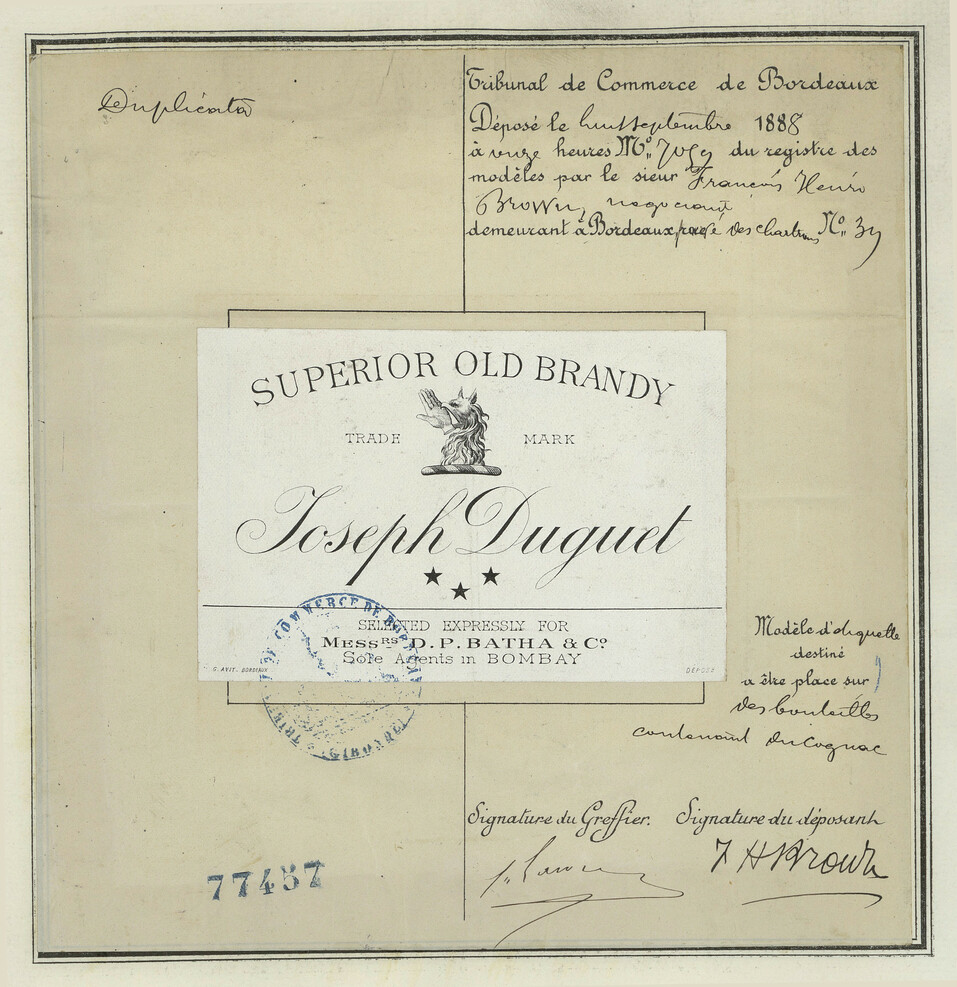 Duplicata
Tribunal de Commerce de Bordeaux
Déposé le huit septembre 1888
à onze heures du registre des
modèles par le sieur François Henri
Brown, negociant
demeurant à Bordeaux, pavé des chartrons No.
SUPERIOR OLD BRANDY
TRADE MARK
Joseph Duguet
SELECTED EXPRESSLY FOR
MESSRS D. P. BATHA & Co.
Sole Agents in BOMBAY
G. AVIT. BORDEAUX
DÉPOSÉ
Modèle d'étiquette
destiné
a être place sur
des bouteilles
contenant du Cognac
TRIBUNAL DE COMMERCE DE BORDEAUX
(GIRONDE)
Signature du Greffier. Signature du déposant
F H Brown
77457